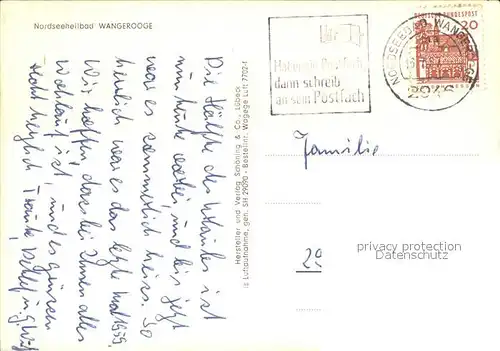 Nordseeheilbad WANGEROOGE
Die Hälfte des Urlaubes ist
nun heute vorbei und bis jetzt
war es sommerlich heiss. So
herrlich war es das letzte Mal 1959.
Wir hoffen, dass bei Ihnen alles
wohlauf ist, und es grüssen
recht herzlich
Hersteller und Verlag Schöning & Co., Lübeck
Luftaufnahme, gen. SH 29090 - Bestellnr. Wagege Luft 7702-1
Hat wer ein Postfach
dann schreib
an sein Postfach
NORDSEEBAD WANGEROOGE
2946
DEUTSCHE BUNDESPOST
20
Familie
29
privacy protection
Datenschutz